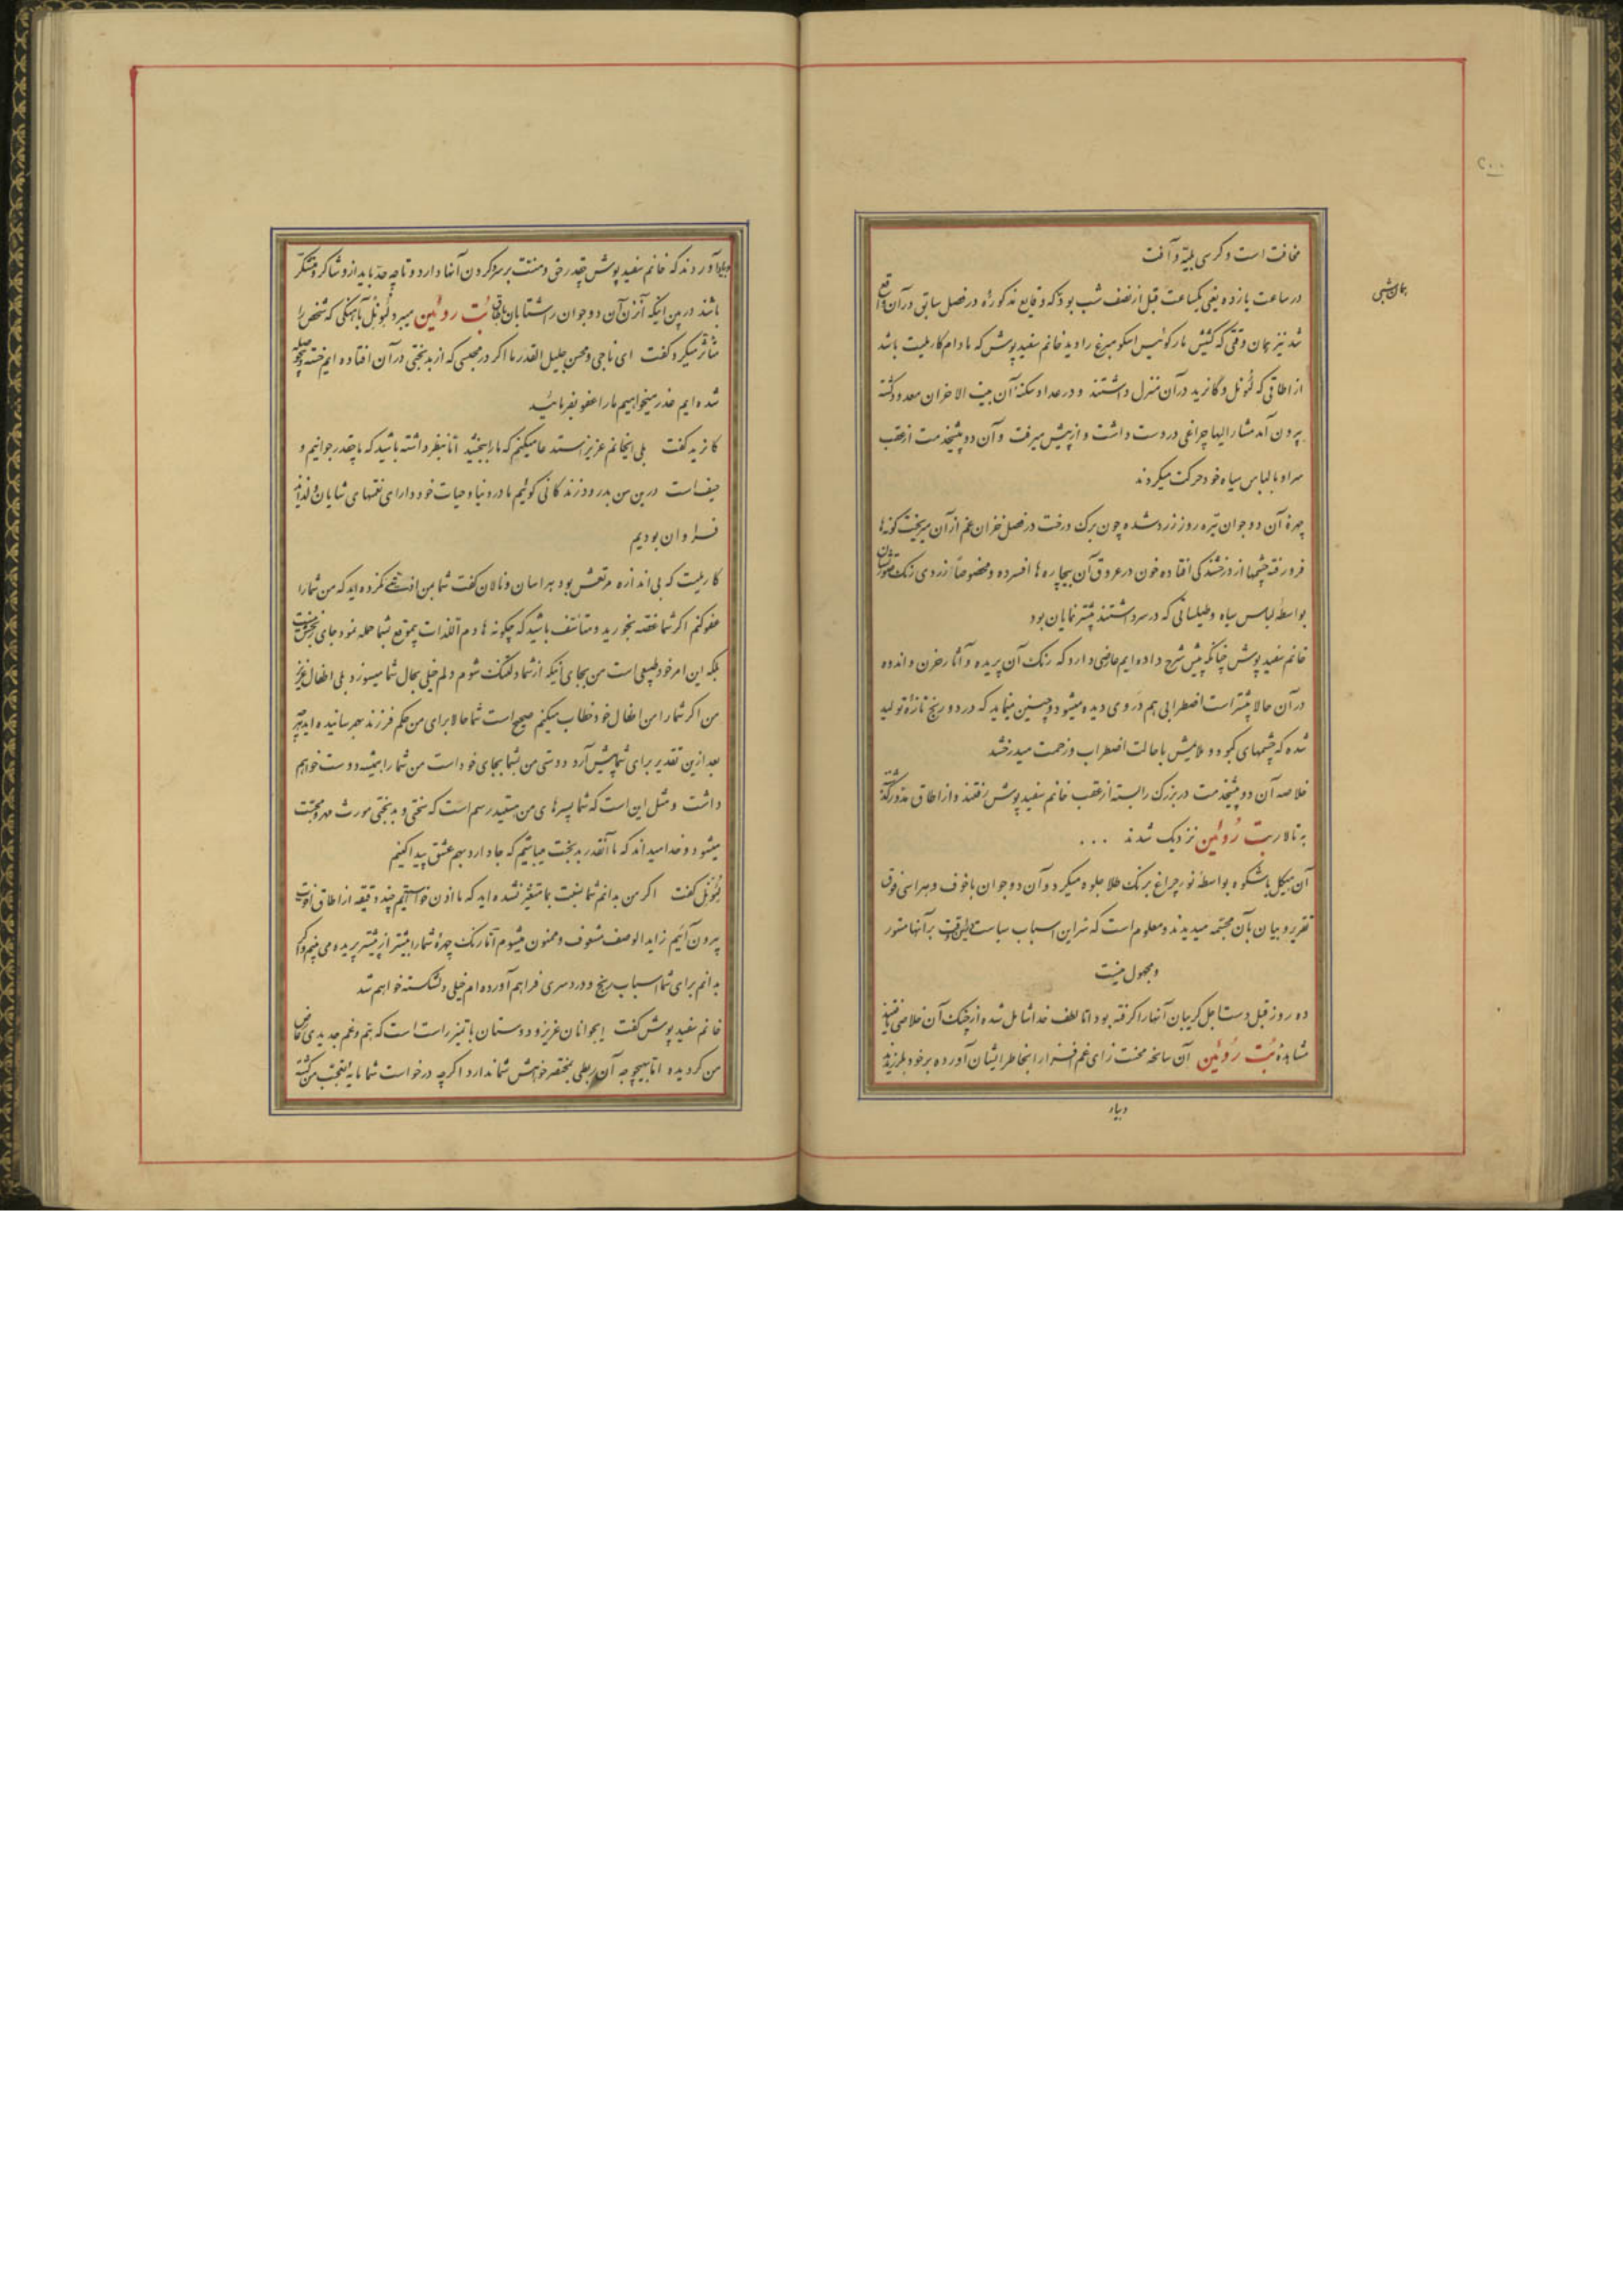 ۲۰۰
مخافت است و کرسی بلیّه و آفت
همان شبی
در ساعت یازده یعنی یکساعت قبل از نصف شب بود که وقایع مذکوره در فصل سابق در آن واقع
شد نیز همان وقتی که کشیش مارکوئیس اسکومبرغ را دید خانم سفید پوش که مادام کارملیت باشد
از اطاقی که لئونل و گانزید در آن منزل داشتند و در عداد سکنهٔ آن بیت الاحزان معدود گشته
بیرون آمد مشار الیها چراغی در دست داشت و از پیش میرفت و آن دو پیشخدمت از عقب
سر او با لباس سیاه خود حرکت میکردند
چهرهٔ آن دو جوان تیره روز زرد شده چون برک درخت در فصل خزان غم از آن میریخت گونه‌ها
فرو رفته چشمها از درخشندگی افتاده خون در عروق آن بیچاره ها افسرده و مخصوصاً زردی رنک
بواسطهٔ لباس سیاه و طیلسانی که در سر داشتند بیشتر نمایان بود
خانم سفید پوش چنانکه پیش شرح داده ایم عارضی دارد که رنک آن پریده و آثار حزن و اندوه
در آن حالا بیشتر است اضطرابی هم در وی دیده میشود و چنین مینماید که درد و رنج تازه تولید
شده که چشمهای کبود و ملایمش با حالت اضطراب و زحمت میدرخشد
خلاصه آن دو پیشخدمت در بزرک را بسته از عقب خانم سفید پوش رفتند و از اطاق مدوّر گذشته
به تالار بت رُوئین نزدیک شدند ...
آن هیکل باشکوه بواسطهٔ نور چراغ برنک طلا جلوه میکرد و آن دو جوان با خوف و هراسی فوق
تقریر و بیان بآن مجسمه میدیدند و معلوم است که سرّ این اسباب سیاست در این وقت بر آنها مستور
و مجهول نیست
ده روز قبل دست اجل گریبان آنها را گرفته بود اما لطف خدا شامل شده از چنک آن خلاصی یافتند
مشاهدهٔ بُت رُوئین آن سانحه محنت زای غم افزا را بخاطر ایشان آورده بر خود بلرزیدند
و بیاد
و بیاد آوردند که خانم سفید پوش چقدر حق و منت بر سر و کردن آنها دارد و تا چه حد باید از او شاکر و متشکر
باشند در بین اینکه آنزن آن دو جوان را شتابان باطاق بُت روئین میبرد لئونل بآهنگی که شخص را
متأثر میکرد گفت ای ناجی و محسن جلیل القدر ما اگر در محبسی که از بدبختی در آن افتاده ایم خسته و بیحوصله
شده ایم عذر میخواهیم ما را عفو بفرمائید
کانزید گفت بلی ایخانم عزیز استدعا میکنم که ما را ببخشید اما بنظر داشته باشید که ما چقدر جوانیم و
حیف است در این سن بدرود زندگانی گوئیم ما در دنیا و حیات خود دارای نعمتهای شایان و لذایذ
فراوان بودیم
کارملیت که بی اندازه مرتعش بود هراسان و نالان گفت شما بمن اذیتی نکرده اید که من شما را
عفو کنم اگر شما غصه بخورید و متأسف باشید که چگونه هادم اللذات بیموقع بشما حمله نمود جای بخشش نیست
بلکه این امر خود طبیعی است من بجای اینکه از شما دلتنک شوم دلم خیلی بحال شما میسوزد بلی اطفال عزیز
من اگر شما را من اطفال خود خطاب میکنم صحیح است شما حالا برای من حکم فرزند بهم رسانیده اید هر چه
بعد ازین تقدیر برای شما پیش آرد دوستی من بشما بجای خود است من شما را همیشه دوست خواهم
داشت و مثل این است که شما پسرهای من هستید رسم است که سختی و بدبختی مورث مهر و محبّت
میشود و خدا میداند که ما آنقدر بدبخت میباشیم که جا دارد بهم عشق پیدا کنیم
لئونل گفت اگر من بدانم شما نسبت بما متغیّر نشده اید که ما اذن خواستیم چند دقیقه از اطاق خود
بیرون آئیم زاید الوصف مشعوف و ممنون میشوم اما رنک چهرهٔ شما را بیشتر از پیشتر پریده می بینم و اگر
بدانم برای شما اسباب رنج و دردسری فراهم آورده ام خیلی دلشکسته خواهم شد
خانم سفید پوش گفت ایجوانان عزیز و دوستان با تمیز راست است که همّ و غم جدیدی عارض
من گردیده اما بهیچوجه آن ربطی بمختصر خواهش شما ندارد اگرچه درخواست شما مایهٔ تعجّب من گشته